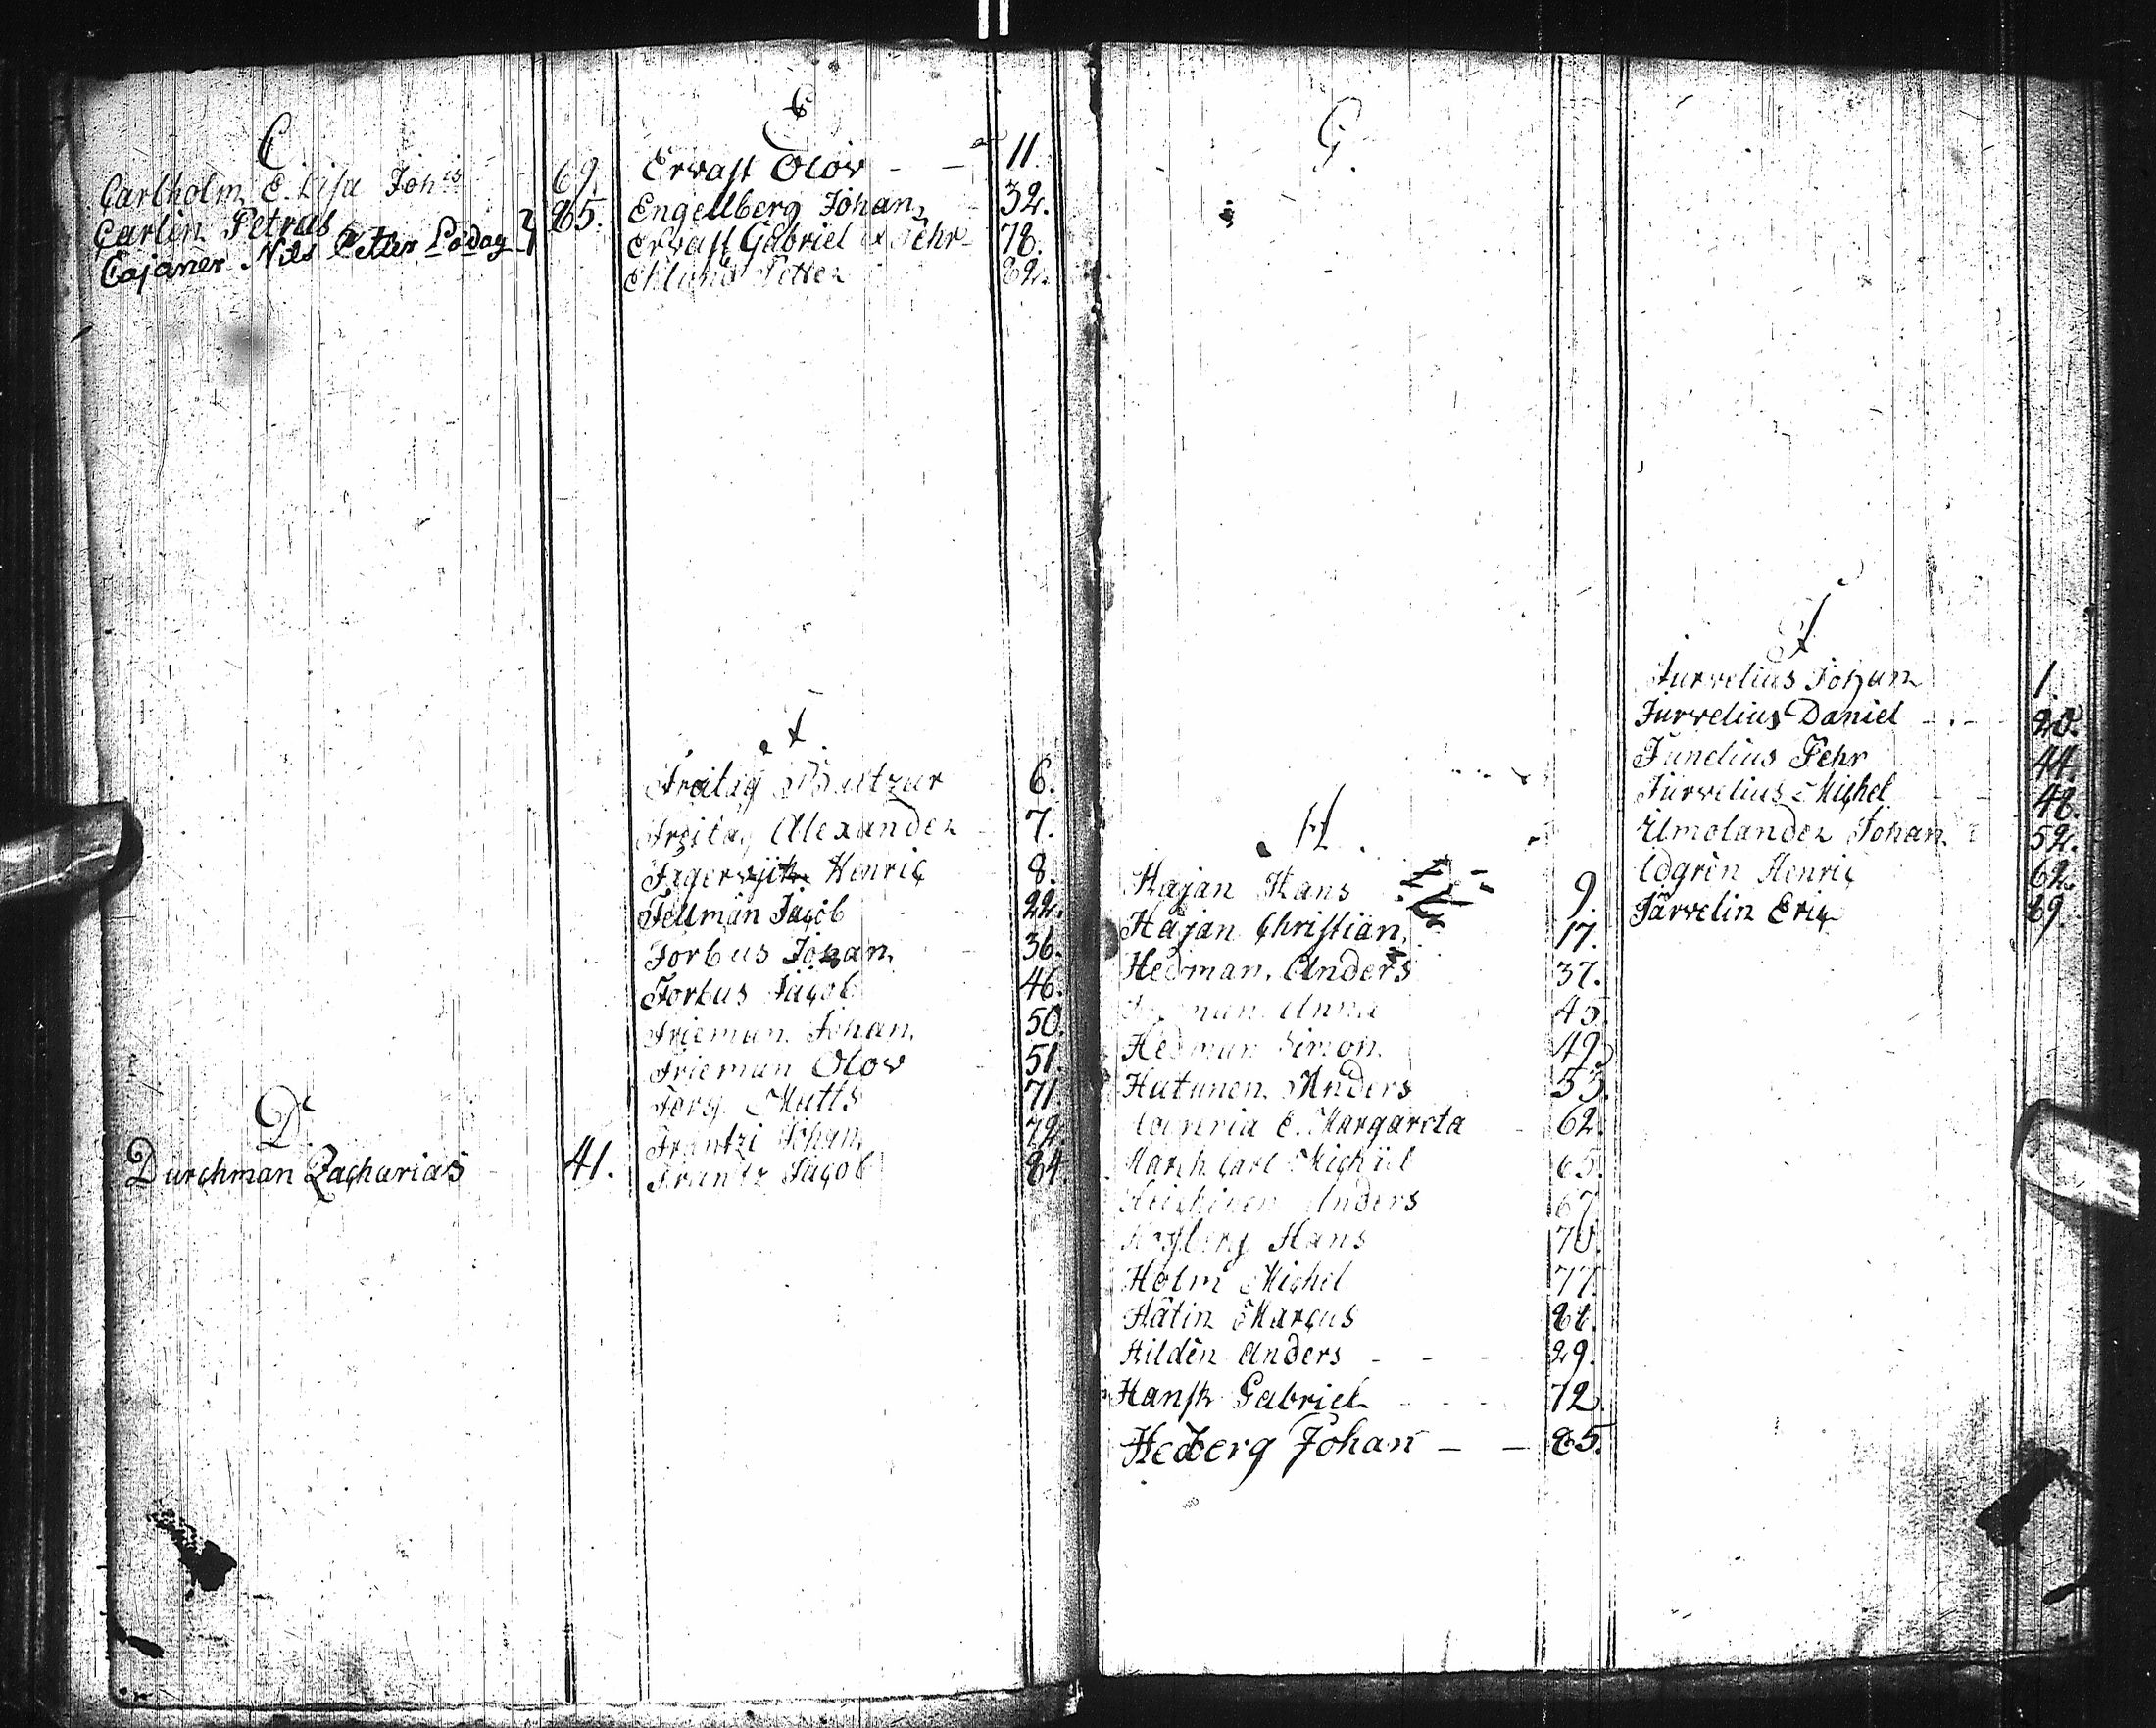 C.
Carlholm, E. Lisa Joh:is 69.
Carlin Petrus 85.
Cajaner Nils Petter
D.
Durchman Zacharias 41.
E
Ervast Olov - - 11.
Engellberg Johan, 32.
Ervast Gabriel & Pehr 78.
Eklund Petter 82.
F.
Freitag Baltzar 6.
Freitag Alexander 7.
Henric 8.
Fellman Jacob 22.
Forbus Johan, 36.
Forbus Jacob 46.
Frieman Johan, 50.
Frieman Olov 51.
Matts 71.
Frantzi Johan, 72.
Frantz Jacob 84.
G.
H.
Hajan Hans 9.
Hajan Christian, 17.
Hedman, Anders 37.
Anna 45.
Hedman Simon, 49.
Hutunen, Anders 53.
E. Margareta 62.
Carl Michael 65.
Anders 67.
Hans 70.
Holm Michel 77.
Hätin Marcus
Hildén Anders - - - 29.
Hansk Gabriel - - - 72.
Hedberg Johan - - 85.
J
Jurvelius Johan 1.
Jurvelius Daniel - - - 20.
Junelius Pehr 44.
Jurvelius Michel 48.
Johan, 52.
Idgrén Henric 62.
Järvelin Eric